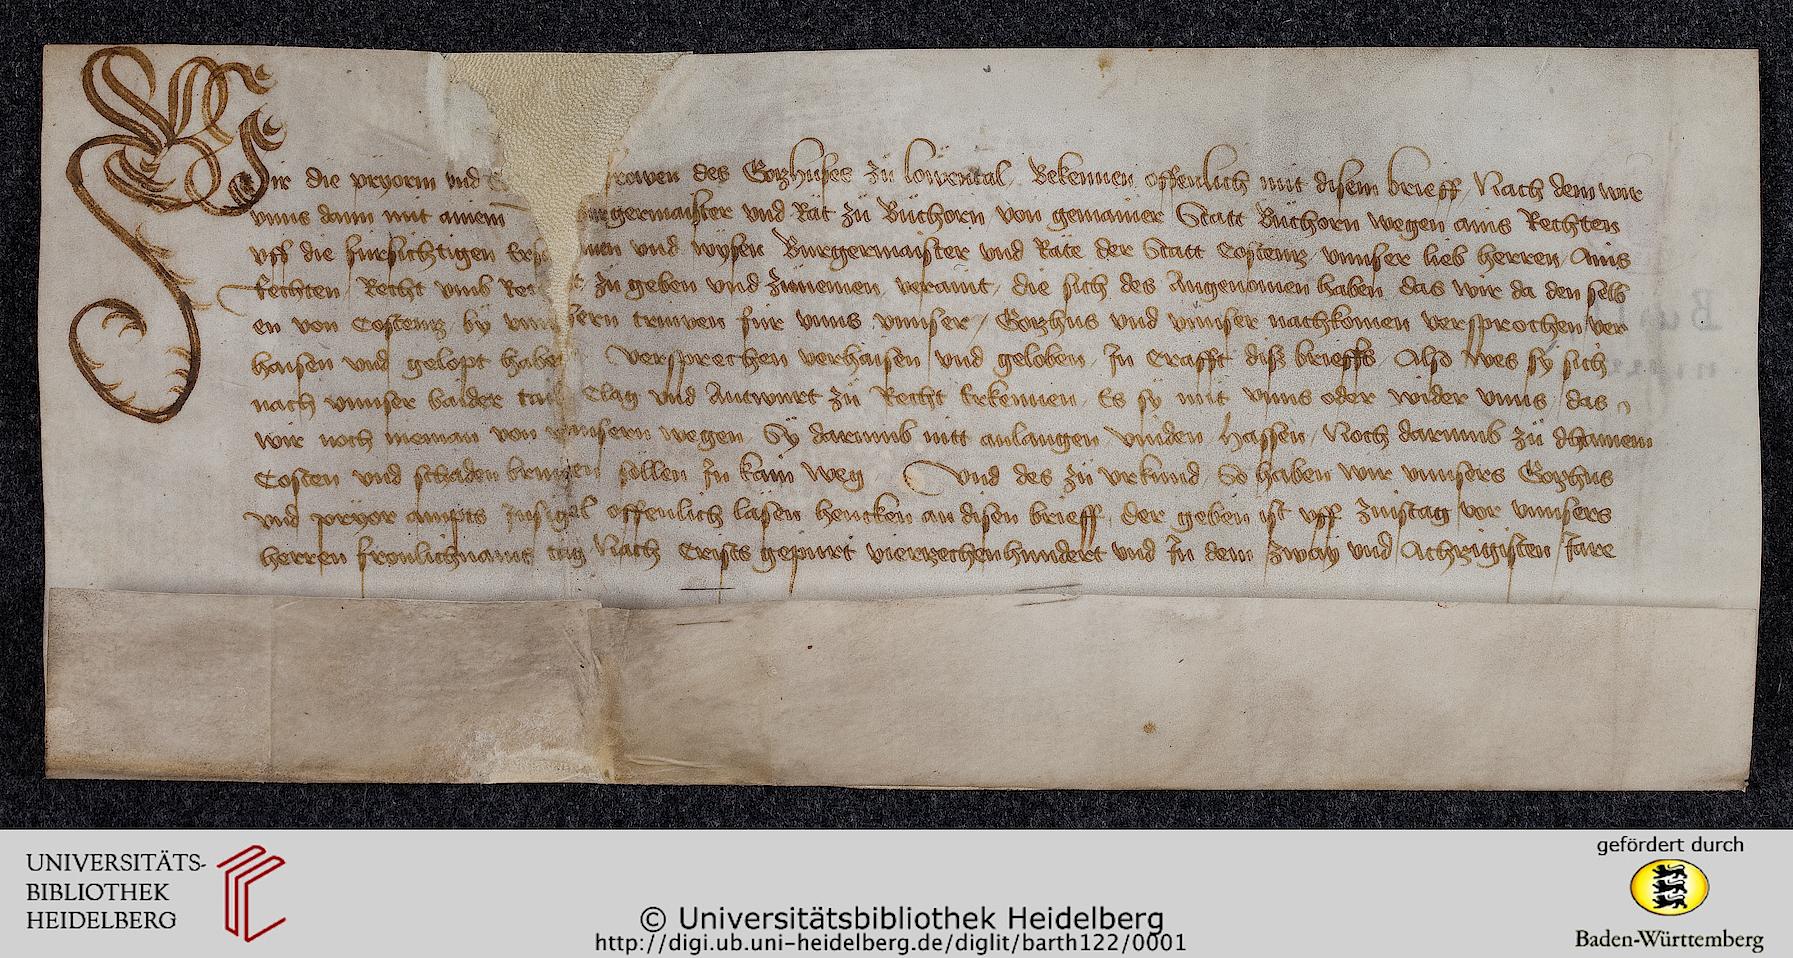 Wir die pryorin vnd frowen des Gotzhuses zů löwental Bekennen offenlich mit disem brieff Nach dem wir
vnns dann mit ainem burgermaister vnd Rat zů Bůchorn von gemainer Statt Bůchorn wegen ains Rechten
vff die fürsichtigen Ersamen vnd wysen Burgermaister vnd Räte der Statt Costentz vnnser lieb herren Ains
Rechten Recht vmb Recht zů geben vnd zůnemen veraint die sich des Angenomen haben das wir da den selb
en von Costentz by vnnsern trüwen für vnns vnnser Gotzhus vnd vnnser nachkomen versprochen ver
haisen vnd gelopt haben Versprechen verhaisen vnd geloben In Crafft diß brieffs Also wes sy sich
nach vnnser baider tail Clag vnd Antwurt zů Recht Erkennen Es sy mit vnns oder wider vnns das
wir noch nieman von vnnsern wegen Sy darumb nitt anlangen vinden hassen Noch darumb zů dhainem
Costen vnd schaden bringen söllen In kain weg Vnd des zů vrkund So haben wir vnnsers Gotzhus
vnd pryor ampts Insigel offenlich läsen hencken an disen brieff der geben ist vff zinstag vor vnnsers
herren fronlichnams tag Nach Crists gepurt vierzechenhundert vnd In dem zway vnd Achtzigisten Jare
UNIVERSITÄTS-
BIBLIOTHEK
HEIDELBERG
© Universitätsbibliothek Heidelberg
http://digi.ub.uni-heidelberg.de/diglit/barth122/0001
gefördert durch
Baden-Württemberg